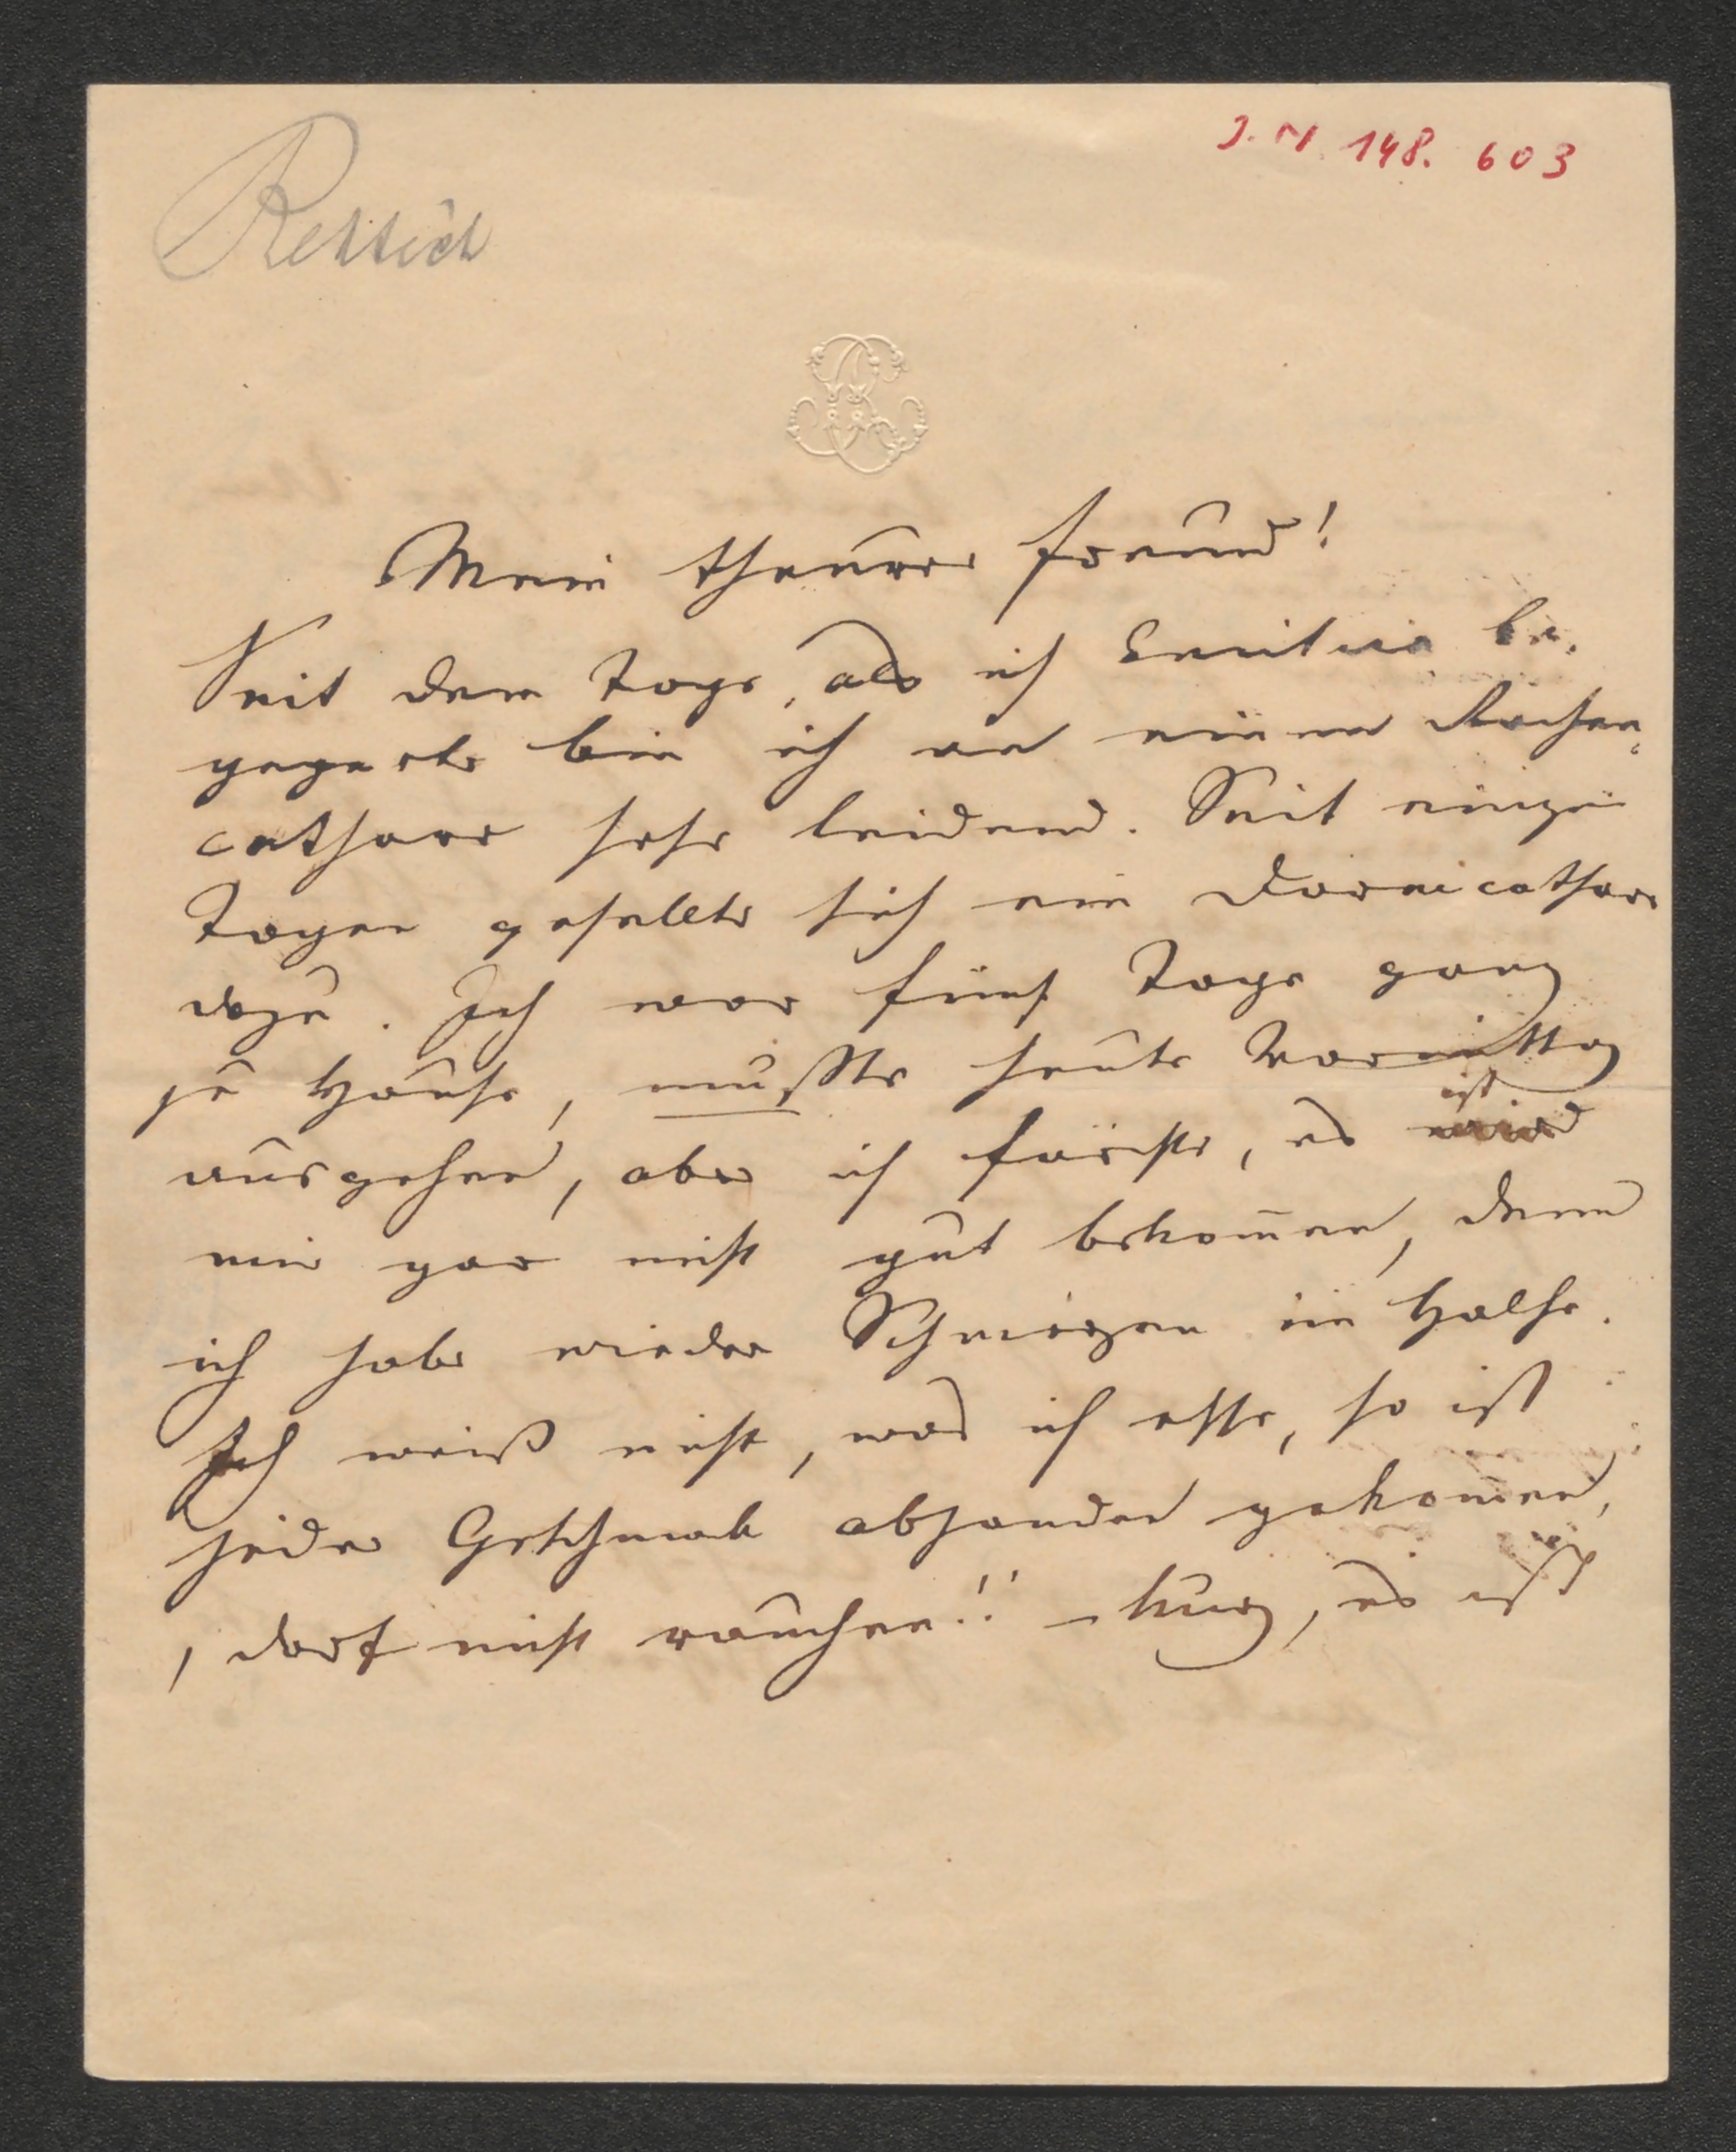 J. N. 148. 603
Rettich
Mein theurer Freund!
Seit dem Tage, als ich Emilia be-
gegnete bin ich an einem Rachen-
catharr sehr leidend. Seit einigen
Tagen gesellte sich ein Darmcatharr
dazu. Ich war fünf Tage ganz
zu Hause, mußte heute Vormittag
ist
ausgehen, aber ich fürchte, es wird
mir gar nicht gut bekom̅en, denn
ich habe wieder Schmerzen im Halse.
Ich weiß nicht, was ich esse, so ist
jeder Geschmak abhanden gekom̅en,
, darf nicht rauchen!! – kurz, es ist